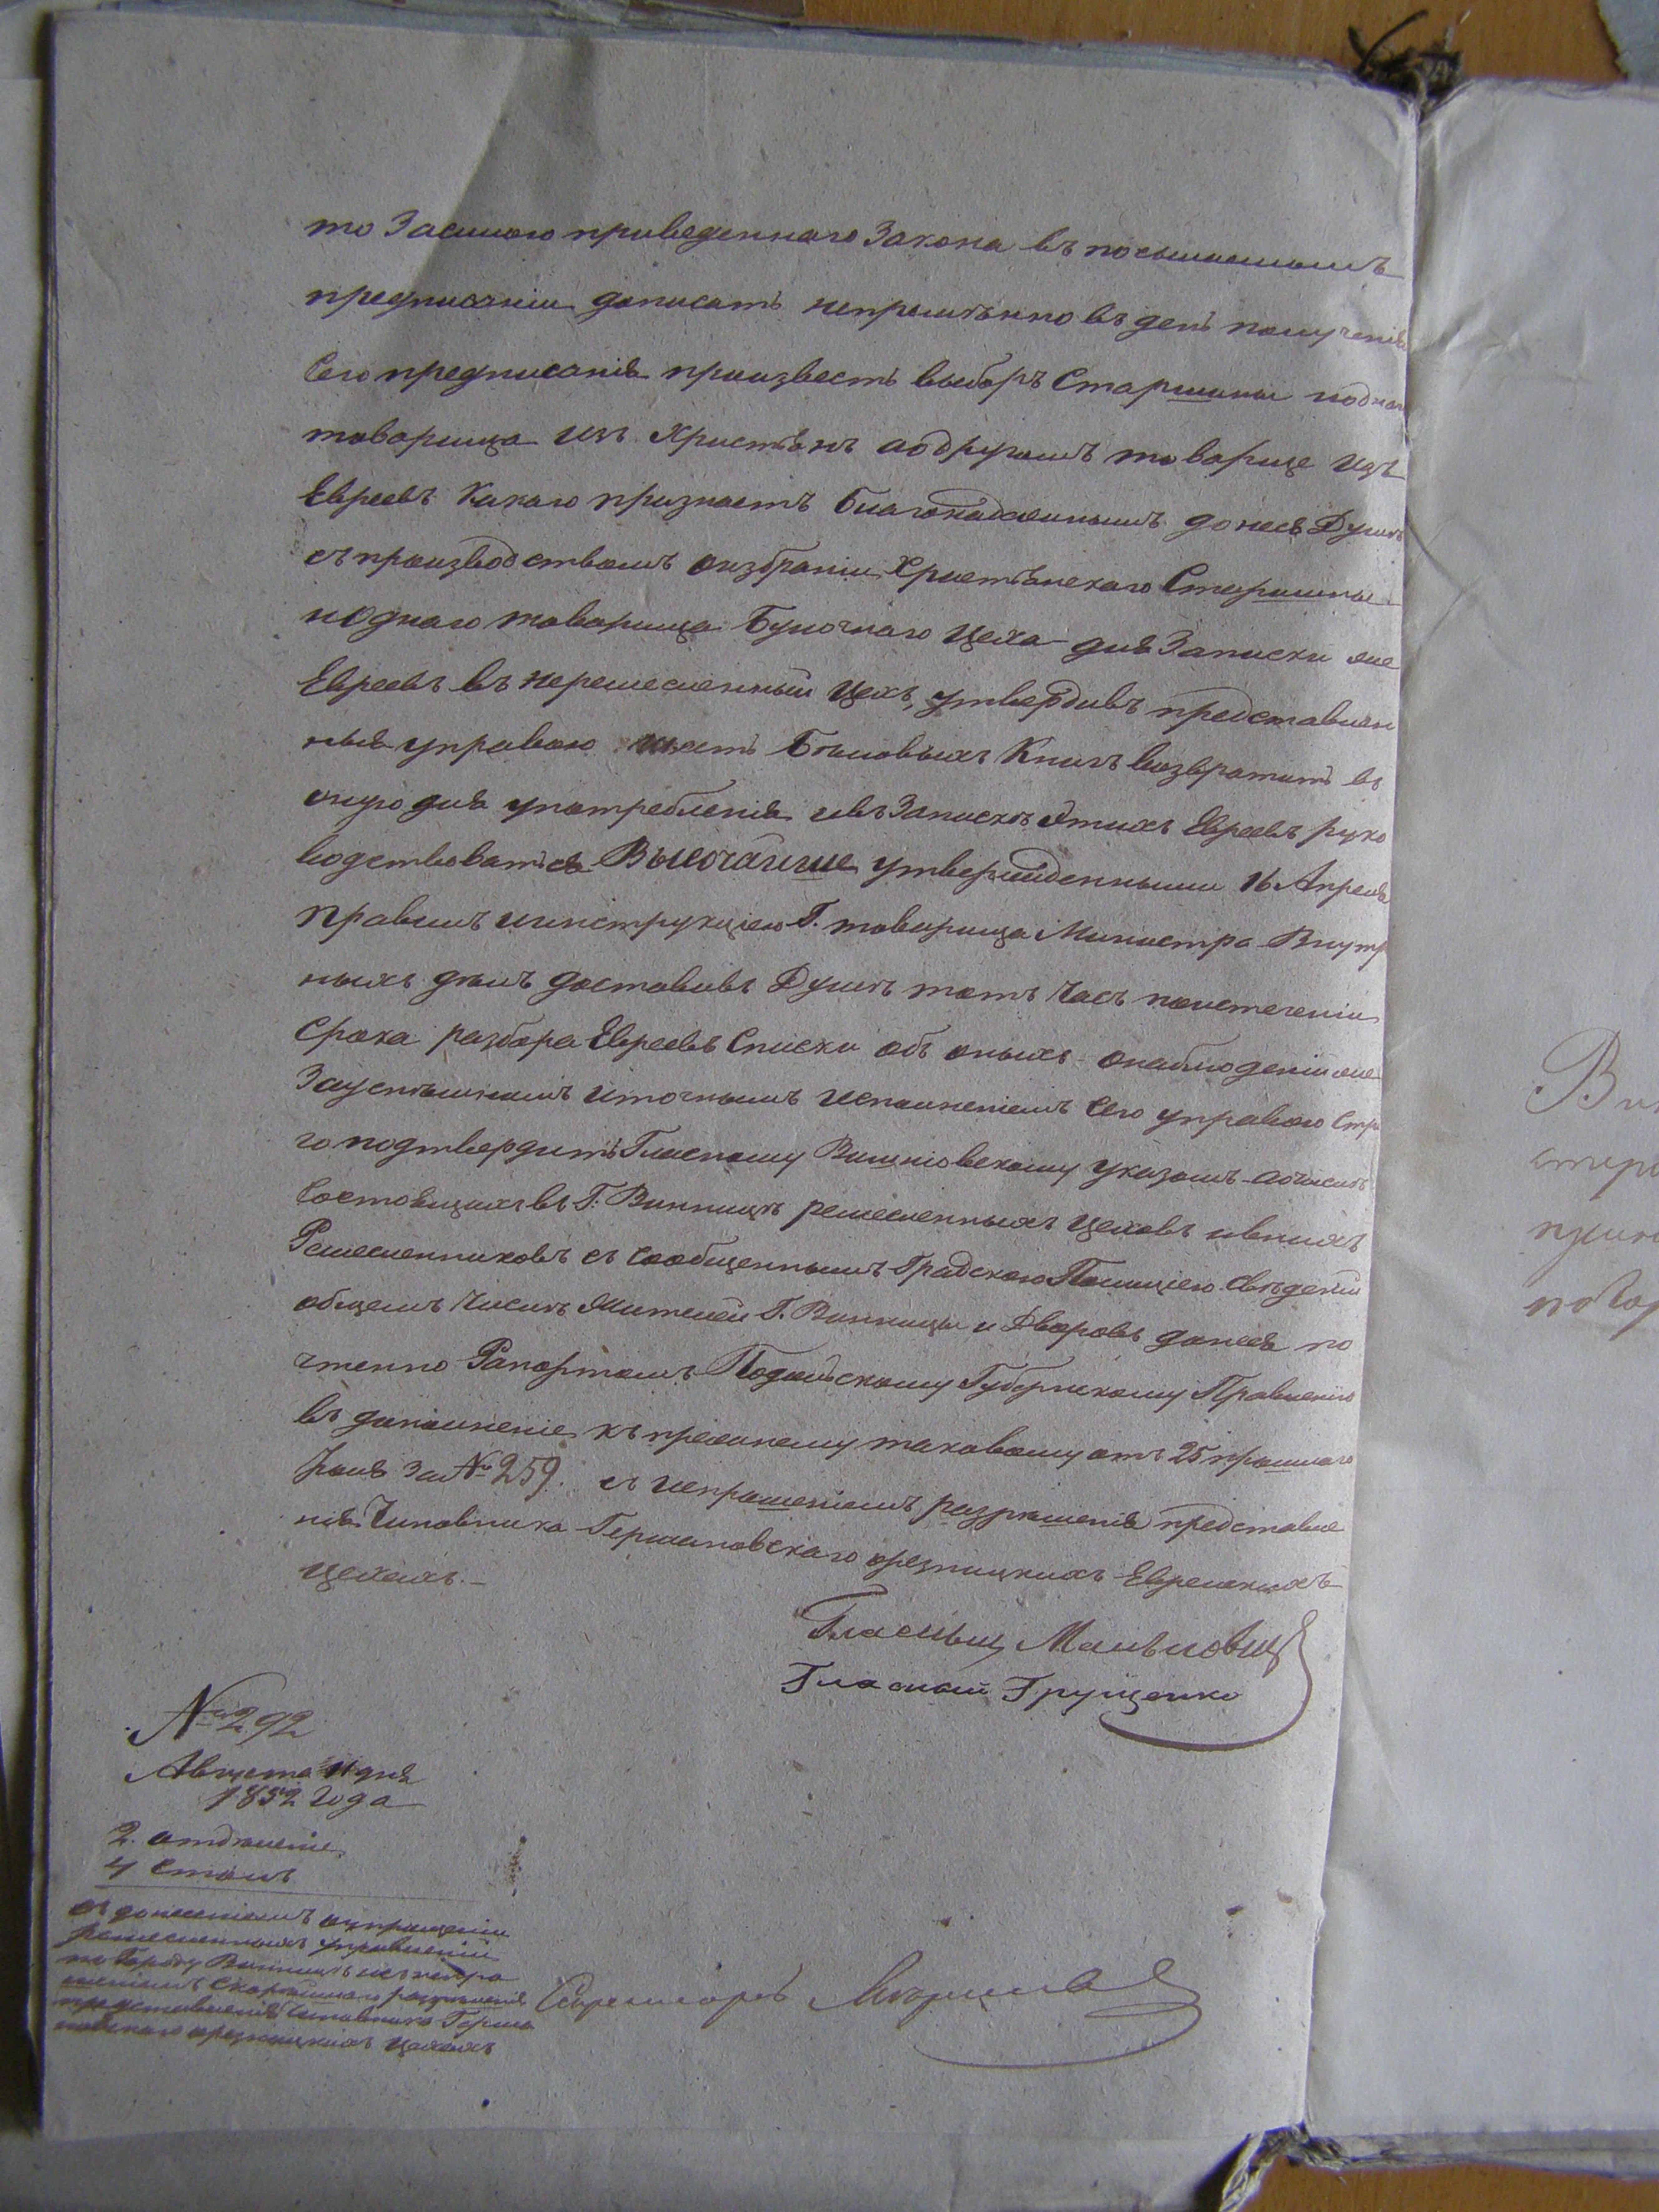 то Засимъ приведеннаго Закона въ посылаемомъ
предписаніи дописать непремѣнно въ день полученія
Сего предписанія произвесть выборъ Старшины и одного
товарища изъ Христіянъ а одругомъ товарище изъ
Евреевъ Какого признаетъ благонадежнымъ донесъ Думѣ
съ производствомъ о избраніи Христіянскаго Старшины
и одного товарища Булочнаго Цеха для Записки же
Евреевъ въ неремесленный Цехъ, утвердивъ представлен
ныя управою шесть Бѣловыхъ Книгъ возвратить въ
оную для употребленія и въ Запискѣ Этихъ Евреевъ руко
водствоваться Высочайше утвержденными 16 Апреля
Правилъ и инструкціею Г. товарища Министра Внутр
ныхъ дѣлъ доставивъ Думѣ тотъ Часъ по истеченіи
Срока разбора Евреевъ Списки объ оныхъ о наблюденіи же
За успѣшнымъ и точнымъ исполненіемъ Сего управою Стро
го подтвердить Гласному Вишніовскому указомъ а о числѣ
Состоящихъ въ Г. Винницѣ ремесленныхъ Цеховъ и въ нихъ
Ремесленниковъ съ сообщеннымъ Градскою Полиціею Свѣденіи
общемъ Числѣ Жителей Г. Винницы и Дворовъ донесъ по
чтенно Рапортомъ Подольскому Губернскому Правленію
въ дополненіе къ прежнему таковому отъ 25 прошлаго
Іюля за № 259. съ испрошеніемъ разрѣшенія представле
нія Чиновника Германовскаго о резницкихъ Еврейскихъ
Цехахъ.-
Гласный
Гласный Грущенко
№ 292
Августа 11 дня
1852 года
2. отдѣленіе
4 Столъ
съ донесеніемъ о упрощеніи
ремесленныхъ управленій
по Городу Винницѣ и съ испро
шеніемъ Скорѣйшаго разрѣшенія
представленія Чиновника Герма
новскаго о резницкихъ Цехахъ
Секретарь